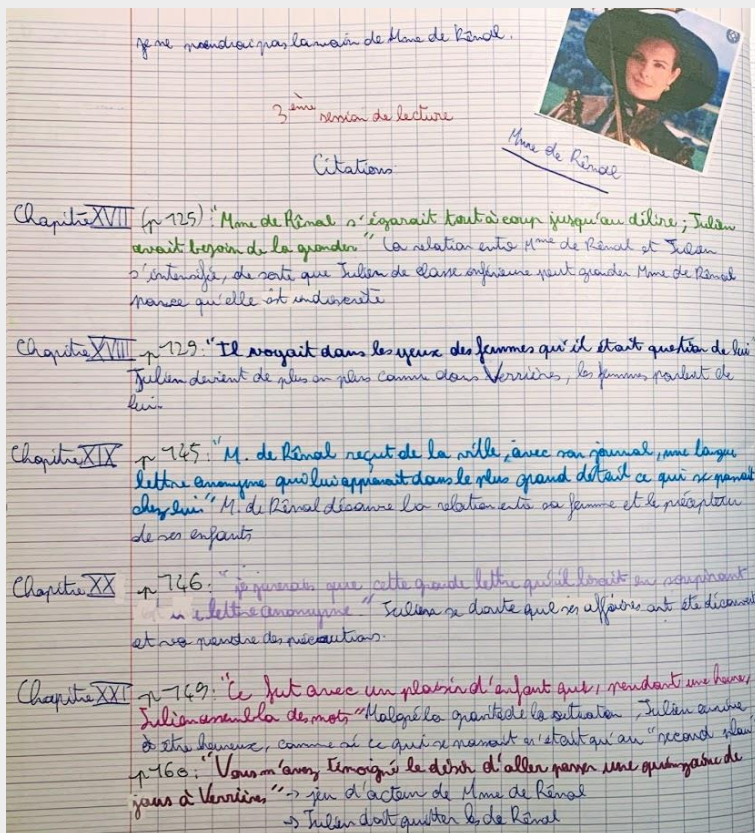 je ne prendrai pas la main de Mme de Rênal.
3ème session de lecture
Citations
Mme de Rênal
Chapitre XVII (p 125): "Mme de Rênal s'égarait tout à coup jusqu'au délire; Julien
avait besoin de la gronder" La relation entre Mme de Rênal et Julien
s'intensifie, de sorte que Julien de classe inférieure peut gronder Mme de Rênal
parce qu'elle est indiscrète
Chapitre XVIII p 129: "Il voyait dans les yeux des femmes qu'il était question de lui"
Julien devient de plus en plus connu dans Verrières, les femmes parlent de
lui.
Chapitre XIX p 145: "M. de Rênal reçut de la ville, avec son journal, une longue
lettre anonyme qui lui apprenait dans le plus grand détail ce qui se passait
chez lui" M. de Rênal découvre la relation entre sa femme et le précepteur
de ses enfants
Chapitre XX p 146: "je jurerais que cette grande lettre qu'il lisait en soupirant
est une lettre anonyme." Julien se doute que ses affaires ont été découvert
et va prendre des précautions.
Chapitre XXI p 149: "Ce fut avec un plaisir d'enfant que, pendant une heure,
Julien assembla des mots" Malgré la gravité de la situation, Julien arrive
à être heureux, comme si ce qui se passait n'était qu'au "second plan"
p 160: "Vous m'avez témoigné le désir d'aller passer une quinzaine de
jours à Verrières" → jeu d'acteur de Mme de Rênal
→ Julien doit quitter les de Rênal